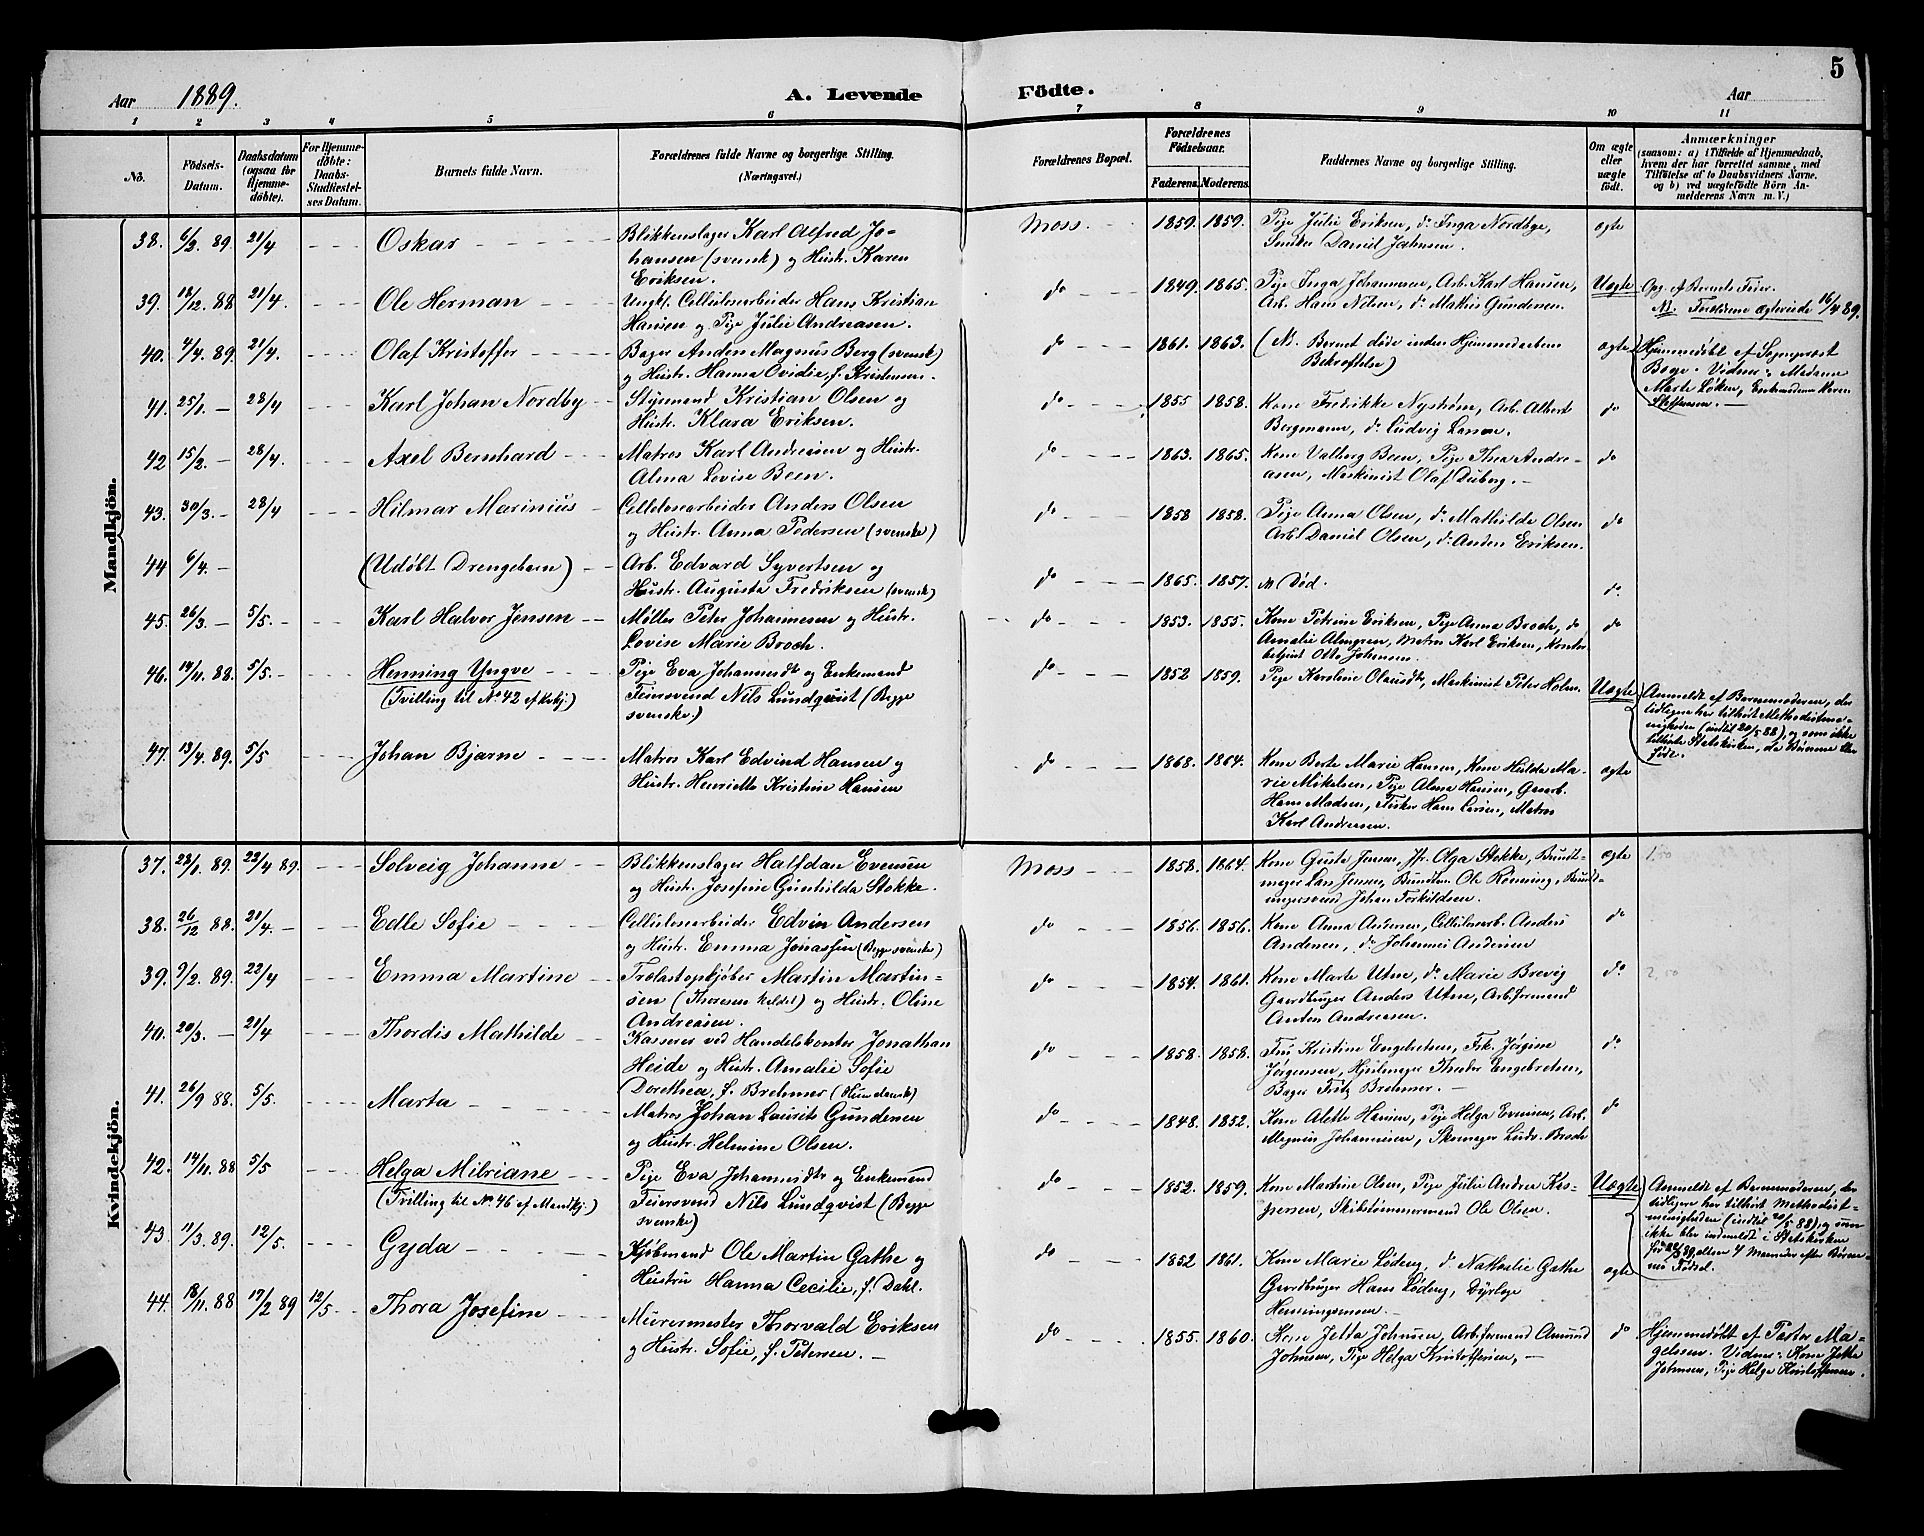 5
Aar 1889.
A. Levende Födte.
Aar
1 2 3 4 5 6 7 8 9 10 11
No.
Födsels-Datum.
Daabsdatum (ogsaa for Hjemme-döbte).
For Hjemme-döbte: Daabs-Stadfæstel-ses Datum.
Barnets fulde Navn.
Forældrenes fulde Navne og borgerlige Stilling.
(Næringsvei.)
Forældrenes Bopæl.
Forældrenes Födselsaar.
Faderens. Moderens.
Faddernes Navne og borgerlige Stilling.
Om ægte eller uægte födt.
Anmærkninger
(saasom: a) i Tilfælde af Hjemmedaab,
hvem der har forrettet samme, med
Tilföielse af to Daabsvidners Navne,
og b) ved uægtefödte Börn An-
melderens Navn m. V.)
Mandkjön.
38. 6/2 89. 21/4 Oskar Blikkenslager Karl Alfred Jo- Moss 1859. 1859. Pige Julie Eriksen, do Inga Nordbye, ægte
hansen (svensk) og Hustr. Karen Snedker Daniel Johnsen.
Eriksen.
39. 18/12. 88 21/4. Ole Herman Ungk. Cellulosearbeider Hans Kristian do 1849. 1865. Pige Inga Johannesen, Arb. Karl Hansen, Uægte Opg. af Barnets Fader.
Hansen og Pige Julie Andreasen. Arb. Hans Nilsen, do Mathias Gundersen. M. Forældrene ægteviede 16/4 89.
40. 4/4. 89. 21/4. Olaf Kristoffer Bager Anders Magnus Berg (svensk) do 1861. 1863. (M. Barnet døde inden Hjemmedaabens ægte Hjemmedøbt af Sogneprest
og Hustr. Hanna Ovidie, f. Kristensen. Bekræftelse) Bøge. Vidner: Madame
Marte Løken, Enkemadame Maren
Steffensen.
41. 25/1. 28/4 Karl Johan Nordby Styrmand Kristian Olsen og do 1855 1858. Kone Fredrikke Nystrøm, Arb. Albert do
Hustr. Klara Eriksen. Bergmann, do Ludvig Larsen.
42 15/2. 28/4. Axel Bernhard Matros Karl Andreasen og Hustr. do 1863. 1865. Kone Valborg Been, Pige Thea Andre- do
Alma Lovise Been. asen, Maskinist Olaf Duberg.
43. 30/3. 28/4 Hilmar Marinius Cellulosearbeider Anders Olsen do 1858 1858. Pige Anna Olsen, do Mathilde Olsen do
og Hustr. Anna Pedersen (svenske) Arb. Daniel Olsen, do Anders Eriksen.
44 6/4. (Udøbt Drengebarn) Arb. Edvard Syvertsen og do 1865. 1857. M Død. do.
Hustr. Augusta Fredriksen (svensk)
45. 26/3. 5/5. Karl Halvor Jensen Møller Peter Johannesen og Hustr. do 1853. 1855. Kone Petrine Eriksen, Pige Anna Broch, do do
Lovise Marie Broch. Amalie Almgren, Matros Karl Eriksen, Kontor
betjent Otto Johnsen.
46. 14/11. 88. 5/5. Henning Yngve Pige Eva Johannesdtr og Enkemand do 1852 1859. Pige Karoline Olausdtr, Maskinist Peter Holm. Uægte Anmeldt af Barnemoderen, der
(Tvilling til No 42 af Kvkj.) Feiersvend Nils Lundquist (Begge tidligere har tilhørt Methodistme-
svenske.) nigheden (indtil 20/5 88), og som ikke
tilhørte Statskirken, da Børnene blev
fødte.
47. 13/4. 89. 5/5 Johan Bjarne Matros Karl Edvind Hansen og do 1868. 1864. Kone Berte Marie Hansen, Kone Hulda Ma- ægte
Hustr. Henriette Kristine Hansen rie Mikelsen, Pige Alma Hansen, Gaarb.
Hans Madsen, Fisker Hans Larsen, Matros
Karl Andreasen.
Kvindekjön.
37. 23/1. 89. 22/4 89. Solveig Johanne Blikkenslager Halfdan Evensen Moss 1858. 1864. Kone Gusta Jensen, Jfr. Olga Stokke, Bundt- ægte 1,50
og Hustr. Josefine Gunhilda Stokke. mager Lars Jensen, Bundtm. Ole Rønning, Bundt-
magersvend Johan Torkildsen.
38. 26/12 88. 21/4. Edle Sofie Cellulosearbeider Edvin Andersen do 1856. 1856. Kone Anna Andersen, Cellulosearb. Anders do
og Hustr. Emma Jonassen (Begge svenske) Andersen, do Johannes Andersen
39. 9/2. 89. 22/4 Emma Martine Trælastopkjøber Martin Martin- do 1854. 1861. Kone Marte Utne, do Marie Brevig do 2,50
sen (Thoresen kaldet) og Hustr. Oline Gaardbruger Anders Utne, Arb.formand
Andreasen. Anton Andreasen.
40. 20/3. 21/4 Thordis Mathilde Kasserer ved Handelskontor Jonathan do 1858. 1858. Fru Kristine Engebretsen, Frk. Jørgine do
Heide og Hustr. Amalie Sofie Jørgensen, Hjulmager Theodor Engebretsen,
Dorethea, f. Brehmer (Hun dansk) Bager Fritz Brehmer.
41. 26/9 88. 5/5. Marta Matros Johan Laurits Gundersen do 1848. 1852. Kone Alette Hansen, Pige Helga Evensen, Arb. do
og Hustr. Helmine Olsen. Magnus Johannesen, Skomager Ludv. Brode
42. 14/11. 88 5/5 Helga Milriane Pige Eva Johannesdtr og Enkemand do 1852. 1859. Kone Martine Olsen, Pige Julie Andrea Kas- Uægte Anmeldt af Barnemoderen, der
(Tvilling til No 46 af Mandkj.) Feiersvend Nils Lundqvist (Begge persen, Skibstømmermand Ole Olsen. tidligere har tilhørt Methodist-
svenske) menigheden (indtil 20/5 88), og som
ikke blev indmeldt i Statskirken
før 22/3 89, altsaa 4 Maaneder efter Børne-
nes Fødsel.
43. 11/3. 89. 12/5. Gyda Kjøbmand Ole Martin Gathe og do 1852 1861. Kone Marie Løberg, do Nathalie Gathe ægte
Hustru Hanna Cecilie, f. Dahl. Gaardbruger Hans Løberg, Dyrlæge
Henningsmoen.
44. 18/11. 88 17/2 89 12/5 Thora Josefine Murermester Thorvald Eriksen do 1855. 1860. Kone Jetta Johnsen, Arb.formand Amund do Hjemmedøbt af Pastor Ma-
og Hustr. Sofie, f. Petersen. Johnsen, Pige Helga Kristoffersen, gelssen. Vidner: Kone Jetta
Johnsen, Pige Helga Kristoffersen.